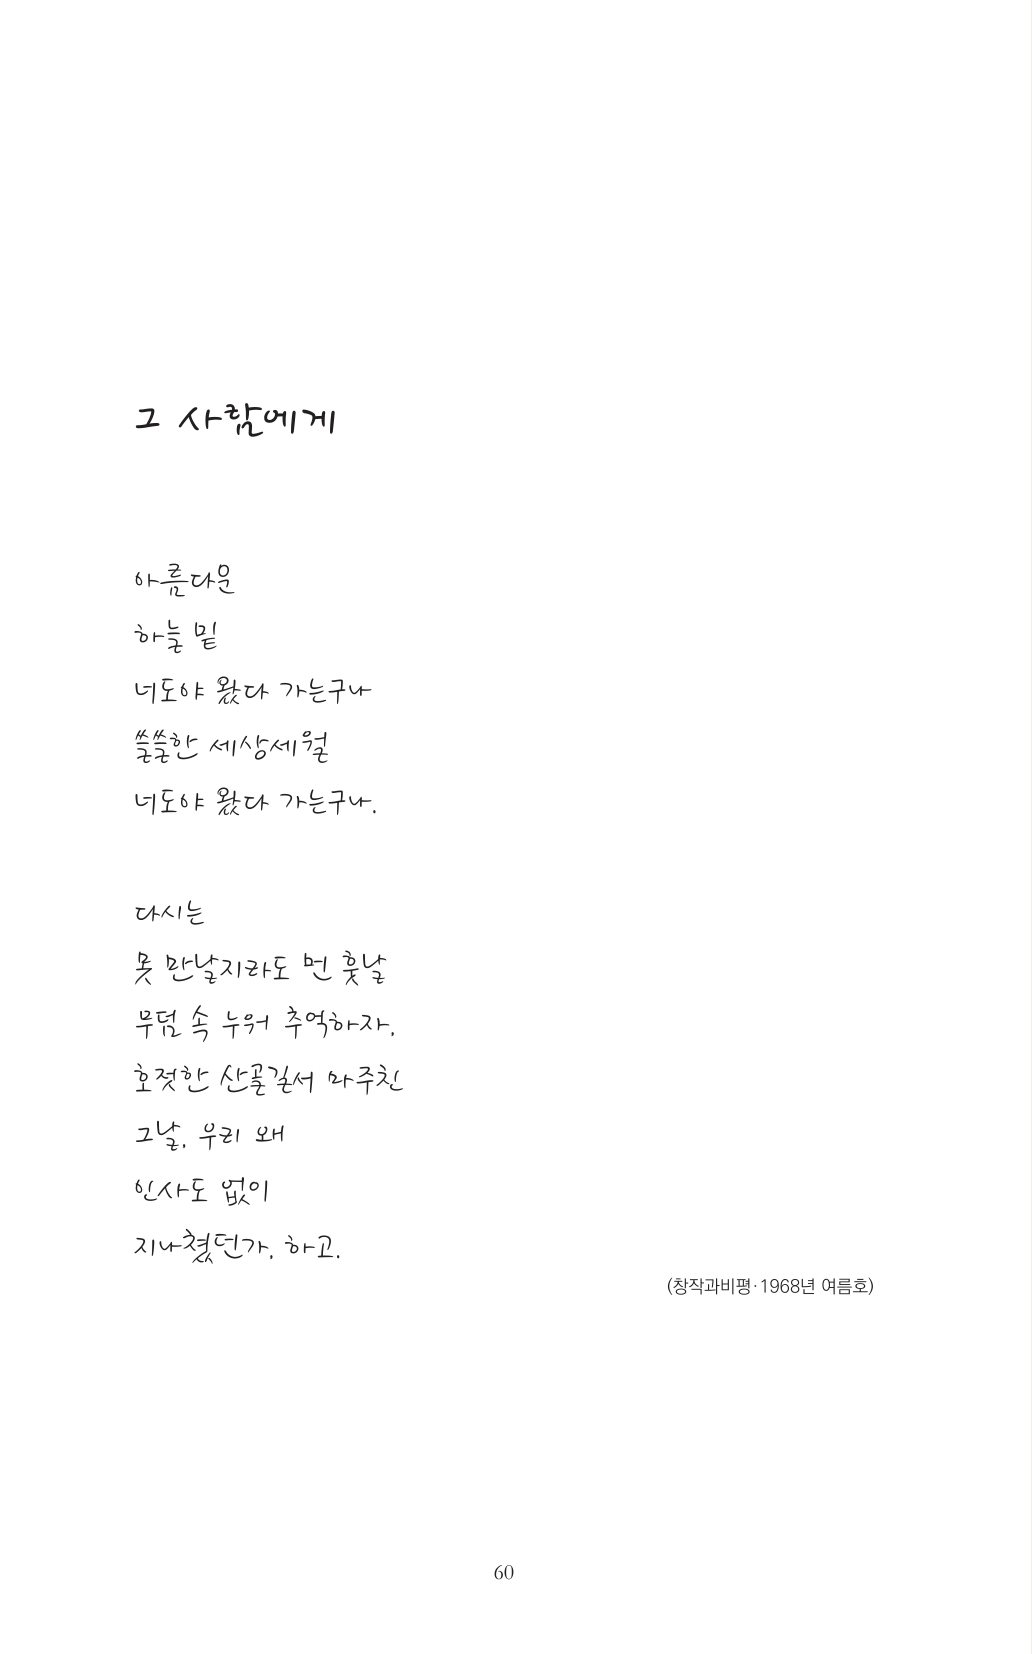 그 사람에게
아름다운
하늘 밑
너도야 왔다 가는구나
쓸쓸한 세상세월
너도야 왔다 가는구나.
다시는
못 만날지라도 먼 훗날
무덤 속 누워 추억하자.
호젓한 산골길서 마주친
그날, 우리 왜
인사도 없이
지나쳤던가, 하고.
(창작과비평·1968년 여름호)
60